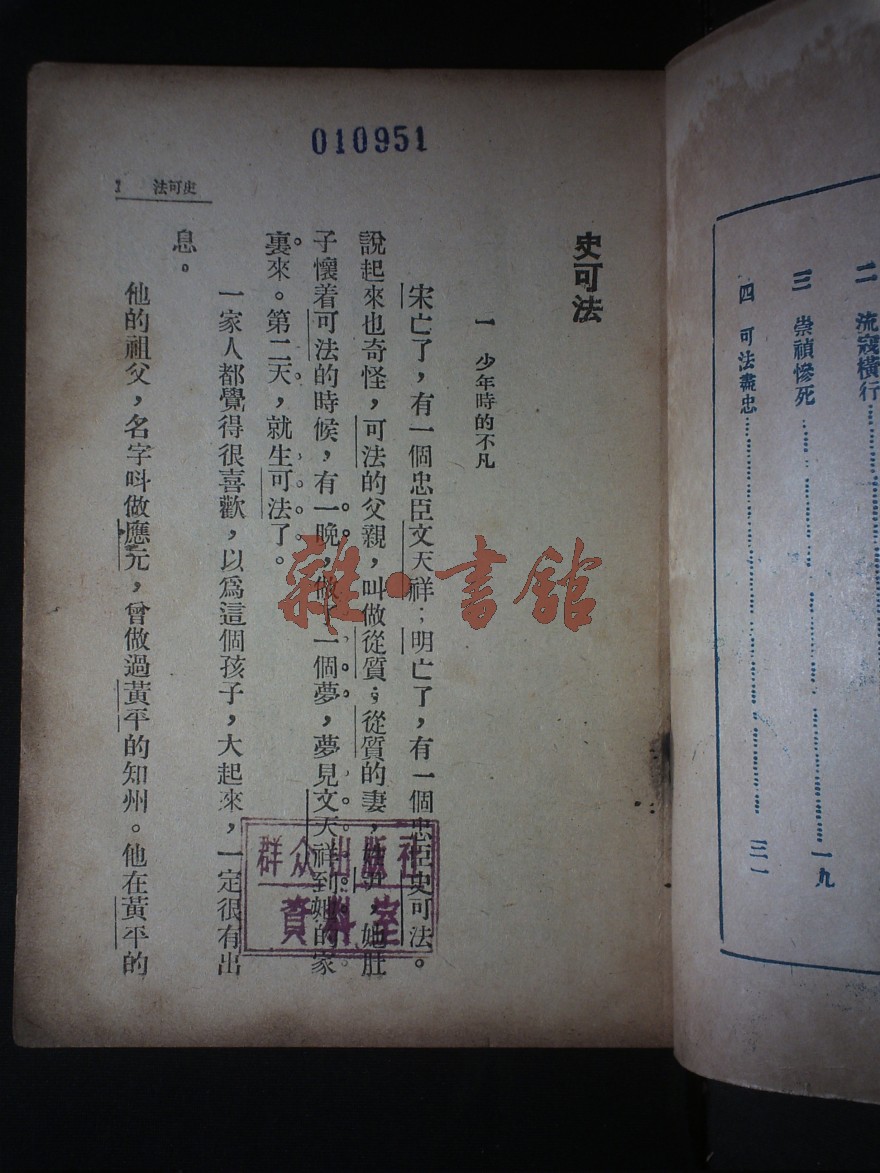 二 流寇橫行
三 崇禎慘死 一九
四 可法盡忠 三一
010951
史可法 1
史可法
一 少年時的不凡
宋亡了，有一個忠臣文天祥；明亡了，有一個忠臣史可法。
說起來也奇怪，可法的父親，叫做從質；從質的妻，尹，她肚
子懷着可法的時候，有一晚，做了一個夢，夢見文天祥到她的家
裏來。第二天，就生可法了。
一家人都覺得很喜歡，以爲這個孩子，大起來，一定很有出
息。
他的祖父，名字呌做應元，曾做過黃平的知州。他在黃平的
群众出版社
資料室
雜·書館